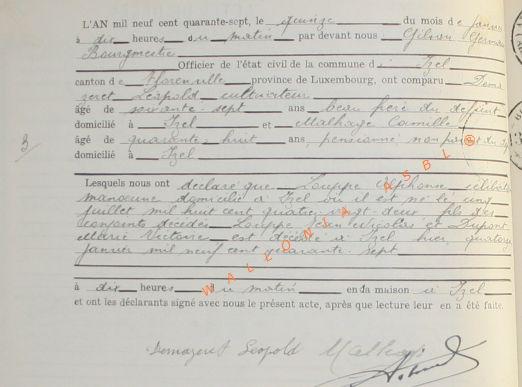 L'AN mil neuf cent quarante-sept, le quinze du mois de janvier
à dix heures du matin par devant nous Gilson Germain
Bourgmestre Officier de l'état civil de la commune d'Izel
canton de Florenville province de Luxembourg, ont comparu Dema
zeret Léopold cultivateur
âgé de soixante-sept ans beau père du défunt
domicilié à Izel et Malhage Camille
âgé de quarante-huit ans, pensionné non parent du
domicilié à Izel
3
Lesquels nous ont déclaré que Louppe Alphonse, célibataire
manoeuvre domicilié à Izel où il est né le vingt
juillet mil huit cent quatre vingt-deux fils des
conjoints décédés Louppe Jean Nicolas et Dupont
Marie Victoire est décédé à Izel hier quatorze
janvier mil neuf cent quarante-sept
à dix heures du matin en da maison à Izel
et ont les déclarants signé avec nous le présent acte, après que lecture leur en a été faite.
Demazeret Léopold Malhage
WALLONIA ASBL